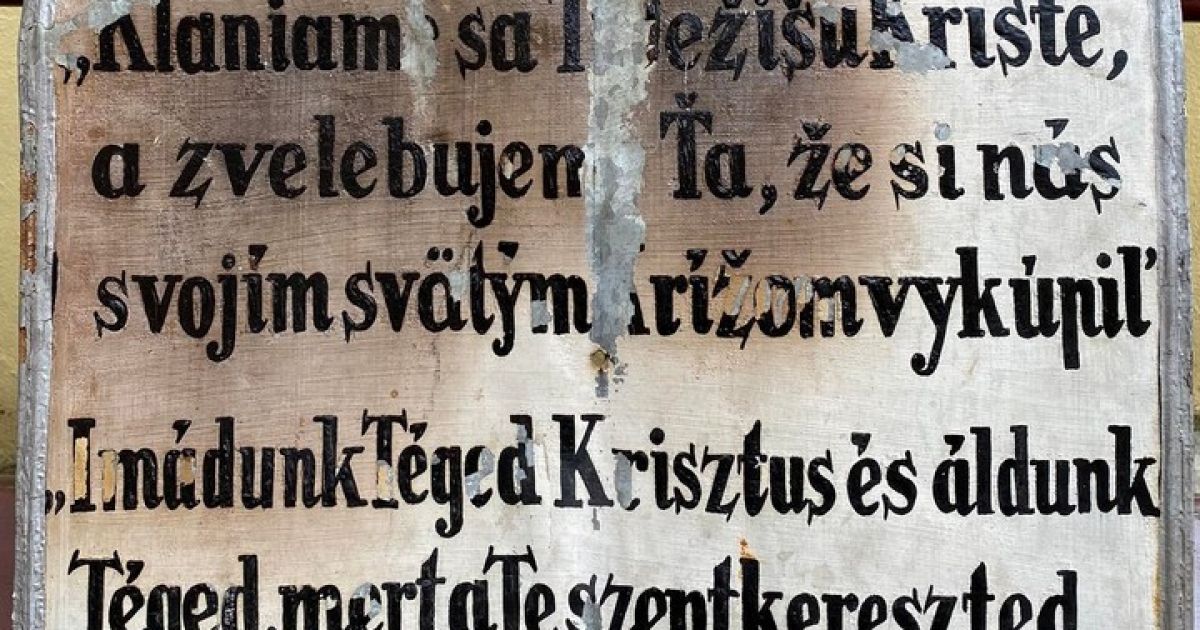 „Klaniame sa Ti Ježišu Kriste,
a zvelebujeme Ťa, že si nás
svojím svätým krížom vykúpil“
„Imádunk Téged Krisztus és áldunk
Téged, mert a Te szent kereszted